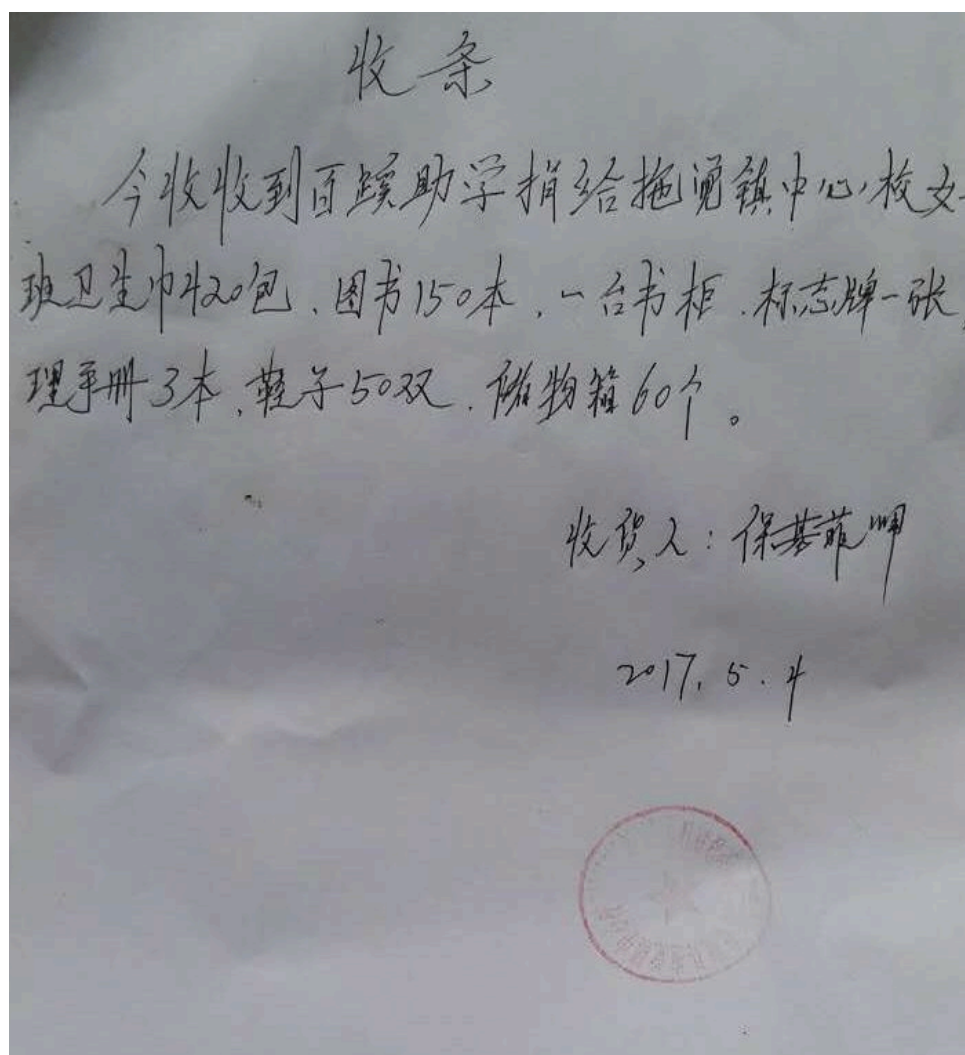 收条
今收收到百蹊助学捐给拖觉镇中心校女
班卫生巾420包、图书150本、一台书柜、标志牌一张
理手册3本、鞋子50双、储物箱60个。
收货人：保基
2017.5.4